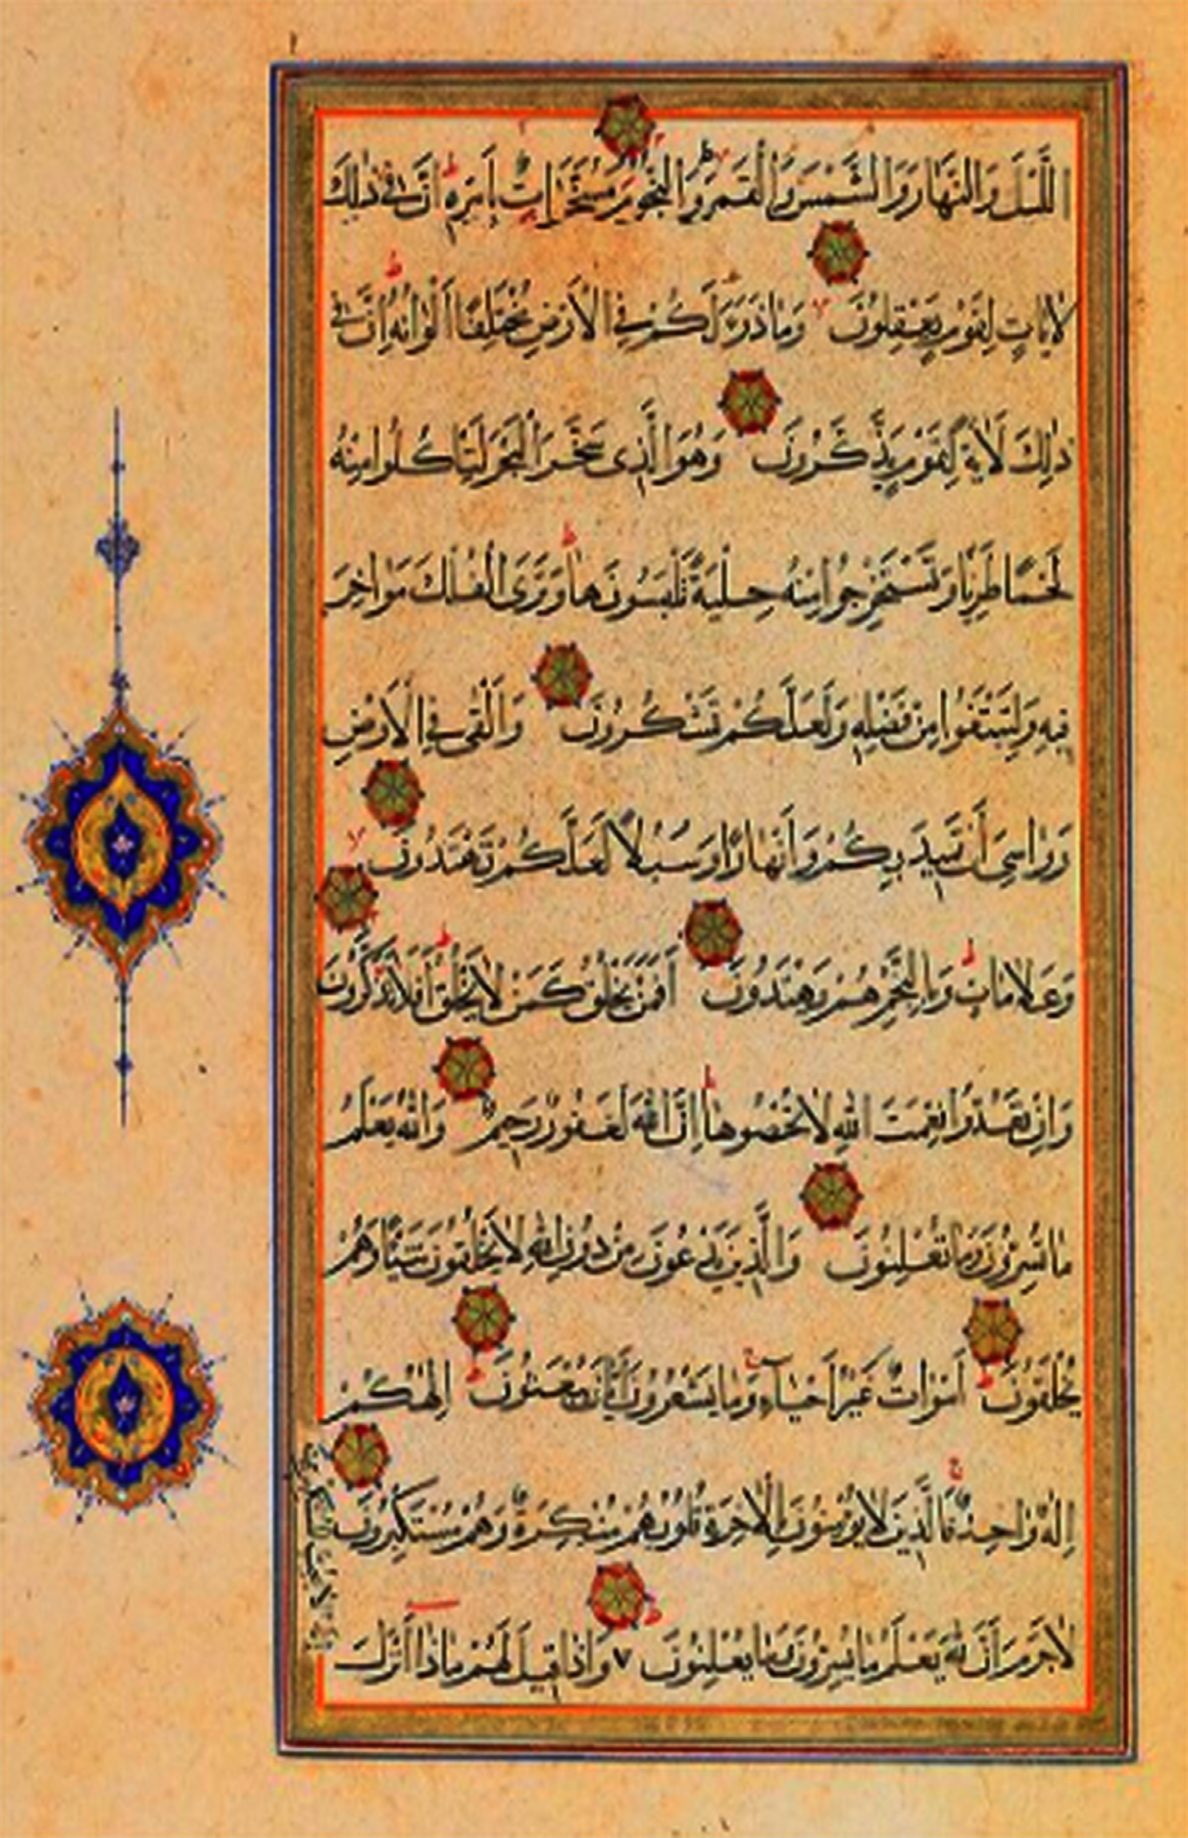 اللَّيْلَ وَالنَّهَارَ وَالشَّمْسَ وَالْقَمَرَ وَالنُّجُومُ مُسَخَّرَاتٌ بِأَمْرِهِ إِنَّ فِي ذٰلِكَ
لَآيَاتٍ لِقَوْمٍ يَعْقِلُونَ وَمَا ذَرَأَ لَكُمْ فِي الْأَرْضِ مُخْتَلِفًا أَلْوَانُهُ إِنَّ فِي
ذٰلِكَ لَآيَةً لِقَوْمٍ يَذَّكَّرُونَ وَهُوَ الَّذِي سَخَّرَ الْبَحْرَ لِتَأْكُلُوا مِنْهُ
لَحْمًا طَرِيًّا وَتَسْتَخْرِجُوا مِنْهُ حِلْيَةً تَلْبَسُونَهَا وَتَرَى الْفُلْكَ مَوَاخِرَ
فِيهِ وَلِتَبْتَغُوا مِنْ فَضْلِهِ وَلَعَلَّكُمْ تَشْكُرُونَ وَأَلْقَى فِي الْأَرْضِ
رَوَاسِيَ أَنْ تَمِيدَ بِكُمْ وَأَنْهَارًا وَسُبُلًا لَعَلَّكُمْ تَهْتَدُونَ
وَعَلَامَاتٍ وَبِالنَّجْمِ هُمْ يَهْتَدُونَ أَفَمَنْ يَخْلُقُ كَمَنْ لَا يَخْلُقُ أَفَلَا تَذَكَّرُونَ
وَإِنْ تَعُدُّوا نِعْمَتَ اللهِ لَا تُحْصُوهَا إِنَّ اللهَ لَغَفُورٌ رَحِيمٌ وَاللهُ يَعْلَمُ
مَا تُسِرُّونَ وَمَا تُعْلِنُونَ وَالَّذِينَ يَدْعُونَ مِنْ دُونِ اللهِ لَا يَخْلُقُونَ شَيْئًا وَهُمْ
يُخْلَقُونَ أَمْوَاتٌ غَيْرُ أَحْيَاءٍ وَمَا يَشْعُرُونَ أَيَّانَ يُبْعَثُونَ إِلٰهُكُمْ
إِلٰهٌ وَاحِدٌ فَالَّذِينَ لَا يُؤْمِنُونَ بِالْآخِرَةِ قُلُوبُهُمْ مُنْكِرَةٌ وَهُمْ مُسْتَكْبِرُونَ
لَا جَرَمَ أَنَّ اللهَ يَعْلَمُ مَا يُسِرُّونَ وَمَا يُعْلِنُونَ وَإِذَا قِيلَ لَهُمْ مَاذَا أَنْزَلَ